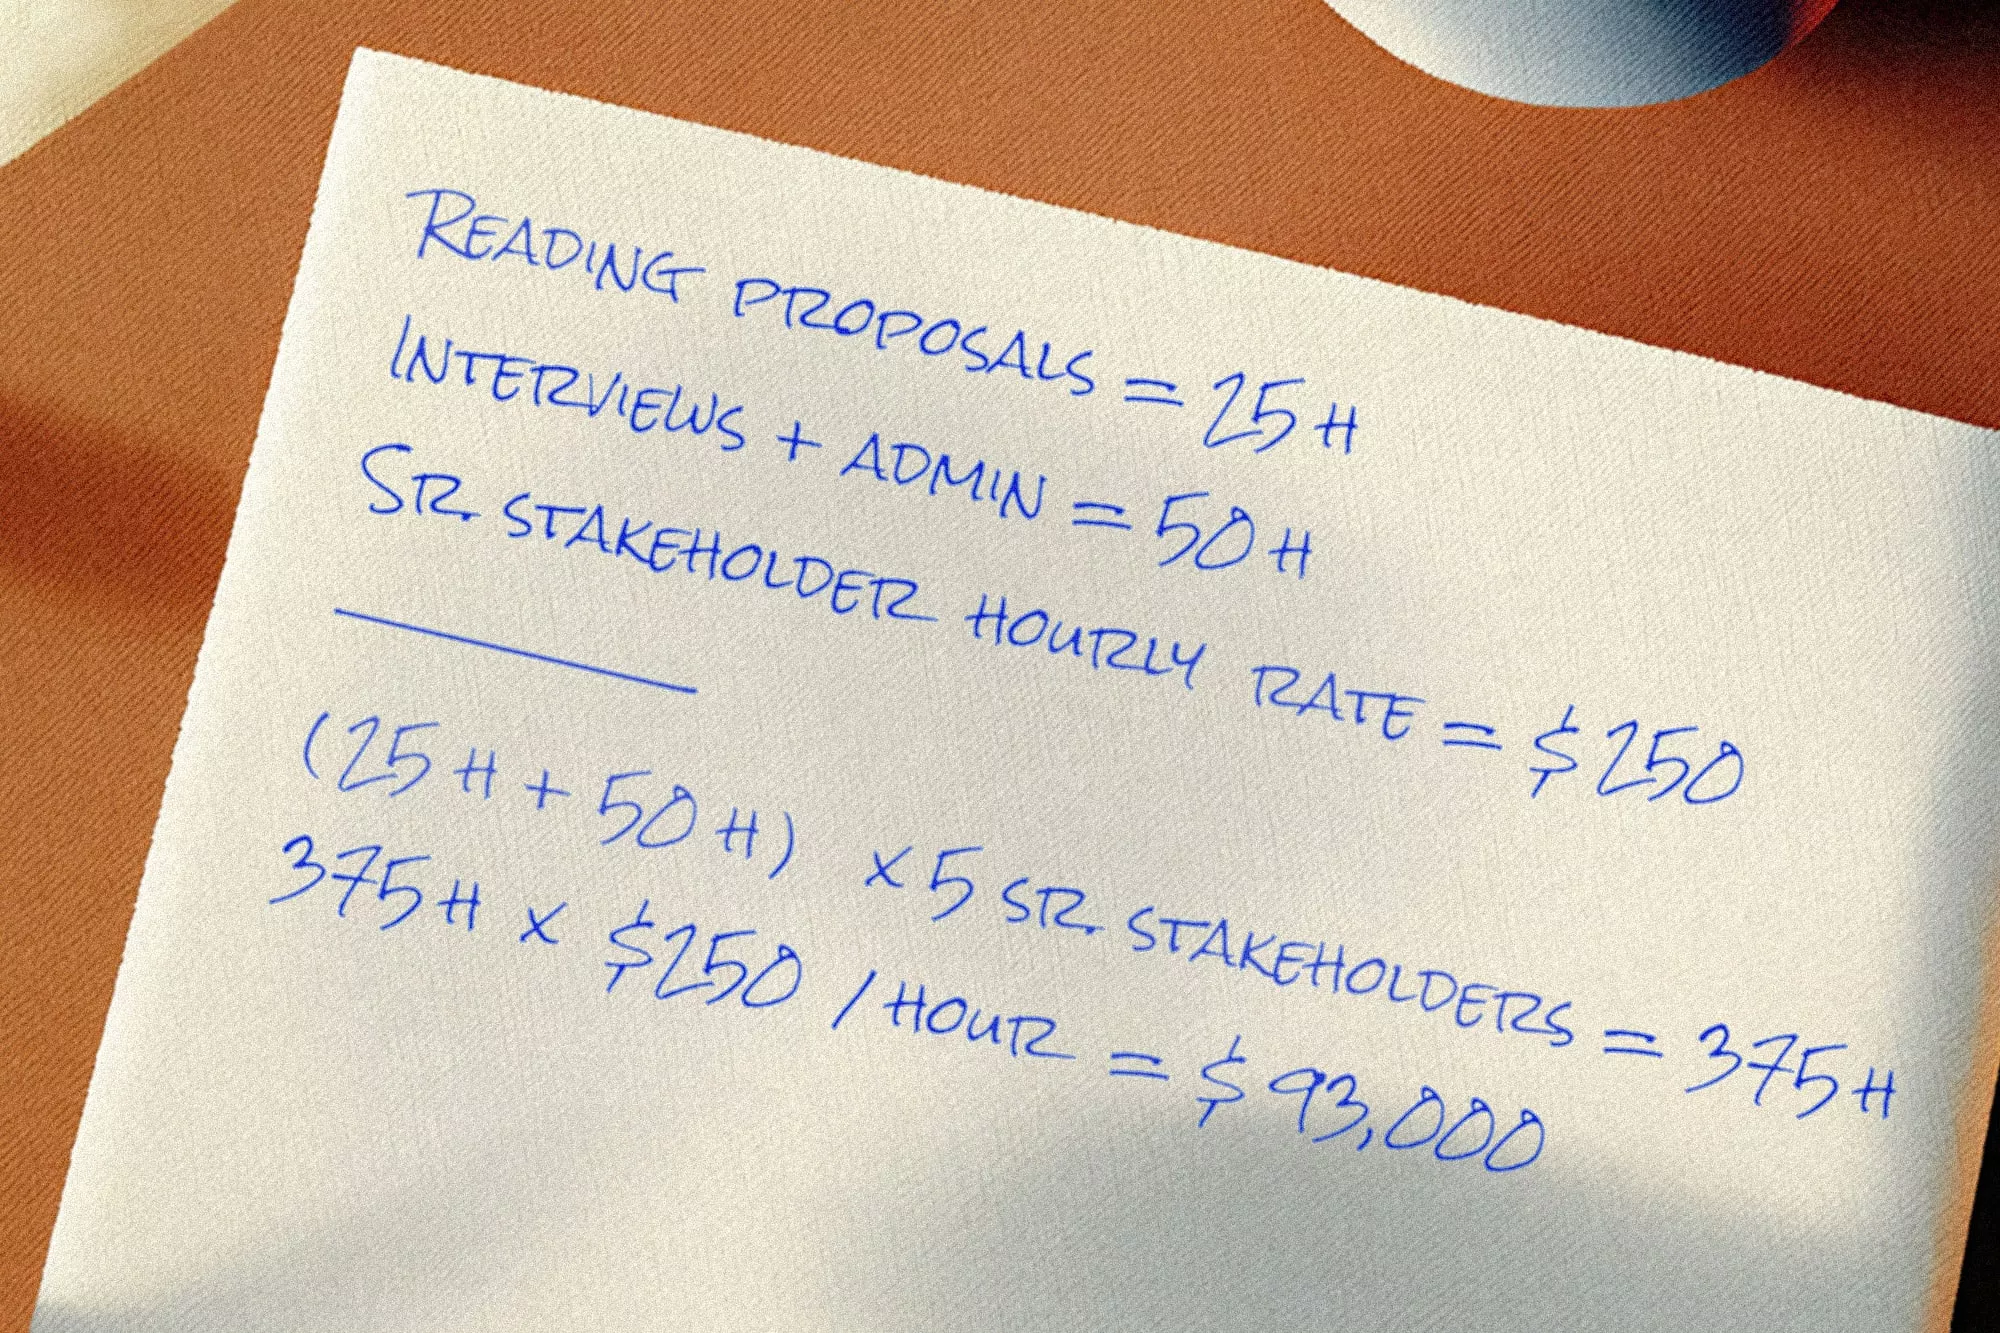 READING PROPOSALS = 25 H
INTERVIEWS + ADMIN = 50 H
SR. STAKEHOLDER HOURLY RATE = $250
(25 H + 50 H) × 5 SR. STAKEHOLDERS = 375 H
375 H × $250 / HOUR = $93,000